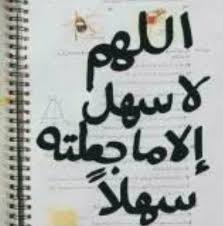 اللهم
لا سهل
إلا ما جعلته
سهلاً